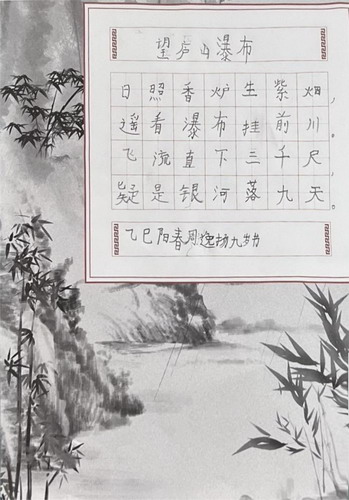 望庐山瀑布
日照香炉生紫烟，
遥看瀑布挂前川。
飞流直下三千尺，
疑是银河落九天。
乙巳阳春周逸扬九岁书